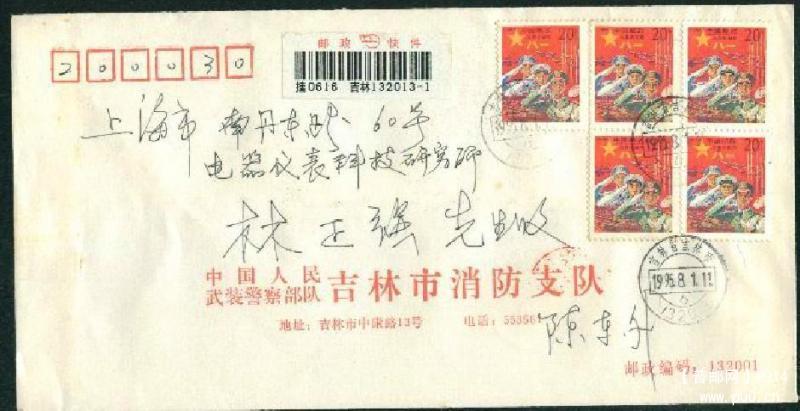 邮政 快件
挂0616 吉林132013-1
200030
20
八一
20
八一
20
八一
20
八一
20
八一
上海市 南丹东路 60号
电器仪表科技研究所
林正强先生收
中国人民
武装警察部队 吉林市消防支队
地址:吉林市中康路13号 电话:55356
陈东升
1995.8.1.11
邮政编码:132001